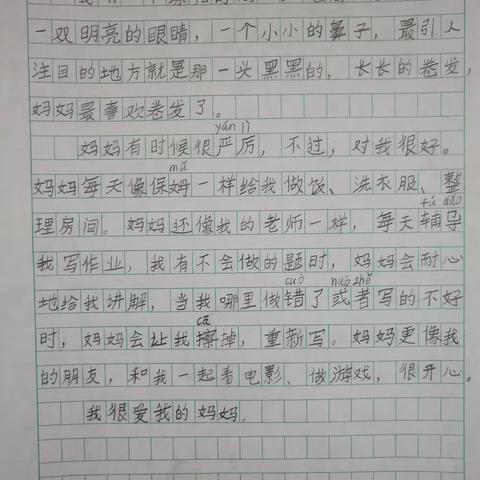 一双明亮的眼睛，一个小小的鼻子，最引人
注目的地方就是那一头黑黑的，长长的卷发，
妈妈最喜欢卷发了。
yán lì
妈妈有时候很严厉，不过，对我很好。
mǔ
妈妈每天像保姆一样给我做饭、洗衣服、整
fǔ dǎo
理房间。妈妈还像我的老师一样，每天辅导
我写作业，我有不会做的题时，妈妈会耐心
cuò huò zhě
地给我讲解，当我哪里做错了或者写的不好
cā
时，妈妈会让我擦掉，重新写。妈妈更像我
的朋友，和我一起看电影、做游戏，很开心。
我很爱我的妈妈。